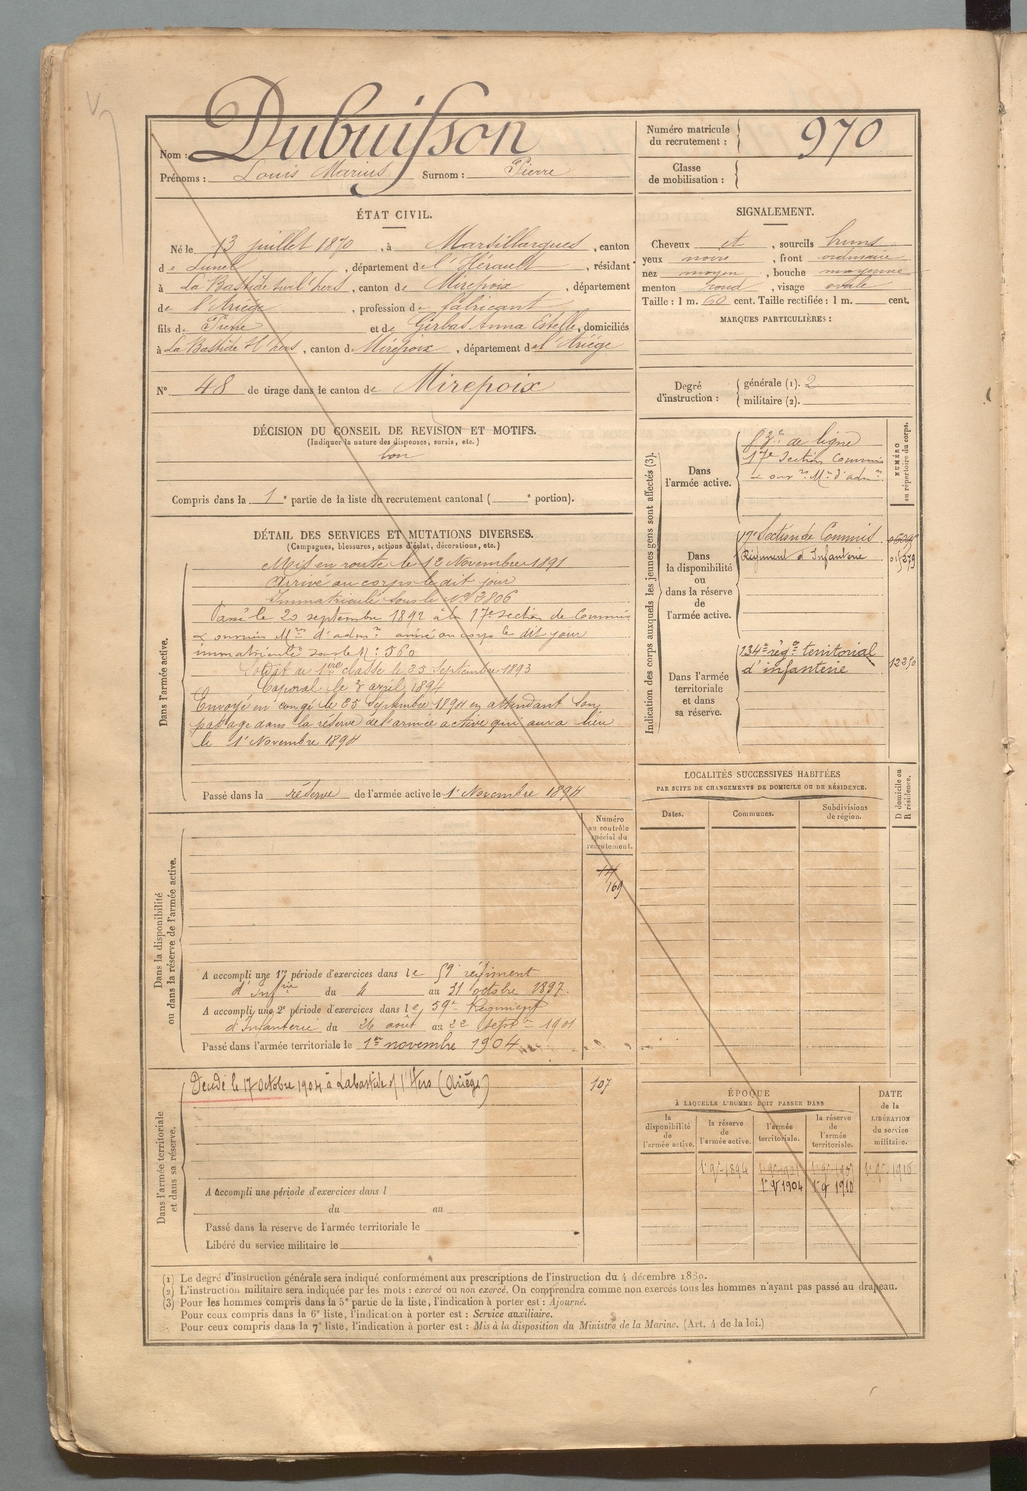 Nom : Dubuisson
Prénoms : Louis Marius Surnom : Pierre
Numéro matricule du recrutement : 970
Classe de mobilisation :
ÉTAT CIVIL.
Né le 13 juillet 1870, à Marsillargues, canton
de Lunel, département de l'Hérault, résidant
à La Bastide sur l'hers, canton de Mirepoix, département
de l'Ariège, profession de fabricant
fils de Pierre et de Gerbas Anna Estelle, domiciliés
à La Bastide s/ l'hers, canton de Mirepoix, département de l'Ariège
N° 48 de tirage dans le canton de Mirepoix
SIGNALEMENT.
Cheveux et, sourcils bruns
yeux noirs, front ordinaire
nez moyen, bouche moyenne
menton rond, visage ovale
Taille : 1 m. 60 cent. Taille rectifiée : 1 m. cent.
MARQUES PARTICULIÈRES :
Degré d'instruction : générale (1). 2
militaire (2).
DÉCISION DU CONSEIL DE REVISION ET MOTIFS.
(Indiquer la nature des dispenses, sursis, etc.)
bon
Compris dans la 1e partie de la liste du recrutement cantonal ( e portion).
DÉTAIL DES SERVICES ET MUTATIONS DIVERSES.
(Campagnes, blessures, actions d'éclat, décorations, etc.)
Dans l'armée active.
Mis en route le 12 Novembre 1891
Arrivé au corps le dit jour
Immatriculé sous le N° 3806
Passé le 20 septembre 1892 à la 17e section de Commis
& ouvriers Mres d'admon arrivé au corps le dit jour
immatriculé sous le N° : 560
Soldat de 1ère classe le 25 Septembre 1893
Caporal le avril 1894
Envoyé en congé le 25 Septembre 1894 en attendant son
passage dans la réserve de l'armée active qui aura lieu
le 1er Novembre 1894
Passé dans la réserve de l'armée active le 1er Novembre 1894
Indication des corps auxquels les jeunes gens sont affectés (3).
NUMÉRO au répertoire du corps.
Dans l'armée active.
de ligne
17e Section Commis
& ouvrs Mres d'admon
Dans la disponibilité ou dans la réserve de l'armée active.
17e Section de Commis
Régiment d'Infanterie
Dans l'armée territoriale et dans sa réserve.
134e régt territorial
d'infanterie
LOCALITÉS SUCCESSIVES HABITÉES
PAR SUITE DE CHANGEMENTS DE DOMICILE OU DE RÉSIDENCE.
D domicile ou R résidence.
Dates. Communes. Subdivisions de région.
Numéro au contrôle spécial du recrutement.
169
Dans la disponibilité ou dans la réserve de l'armée active.
A accompli une 1e période d'exercices dans le 59e régiment
d'Infrie du 4 au 31 octobre 1897.
A accompli une 2e période d'exercices dans le 59e Régiment
d'Infanterie du 26 août au 22 Septre 1901
Passé dans l'armée territoriale le 1er novembre 1904
Dans l'armée territoriale et dans sa réserve.
Décédé le 17 octobre 1904 à Labastide s/ l'Hers (Ariège)
107
A accompli une période d'exercices dans l
du au
Passé dans la réserve de l'armée territoriale le
Libéré du service militaire le
ÉPOQUE
À LAQUELLE L'HOMME DOIT PASSER DANS
DATE de la LIBÉRATION du service militaire.
la disponibilité de l'armée active. la réserve de l'armée active. l'armée territoriale. la réserve de l'armée territoriale.
1er 9bre 1894
1er 9bre 1904 1er 9bre 1910
1er 9bre 1916
(1) Le degré d'instruction générale sera indiqué conformément aux prescriptions de l'instruction du 4 décembre 1889.
(2) L'instruction militaire sera indiquée par les mots : exercé ou non exercé. On comprendra comme non exercés tous les hommes n'ayant pas passé au drapeau.
(3) Pour les hommes compris dans la 5e partie de la liste, l'indication à porter est : Ajourné.
Pour ceux compris dans la 6e liste, l'indication à porter est : Service auxiliaire.
Pour ceux compris dans la 7e liste, l'indication à porter est : Mis à la disposition du Ministre de la Marine. (Art. 4 de la loi.)